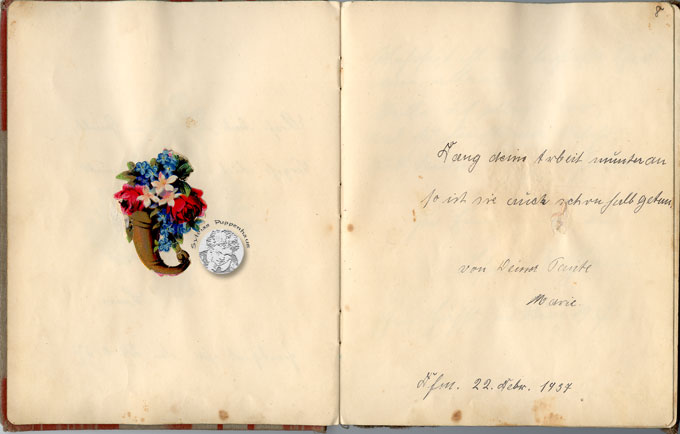 Sylvias Puppenhaus
8
Fang deine Arbeit munter an
so ist sie auch schon halb getan
von Deiner Tante
Marie.
Ffm. 22. Febr. 1937